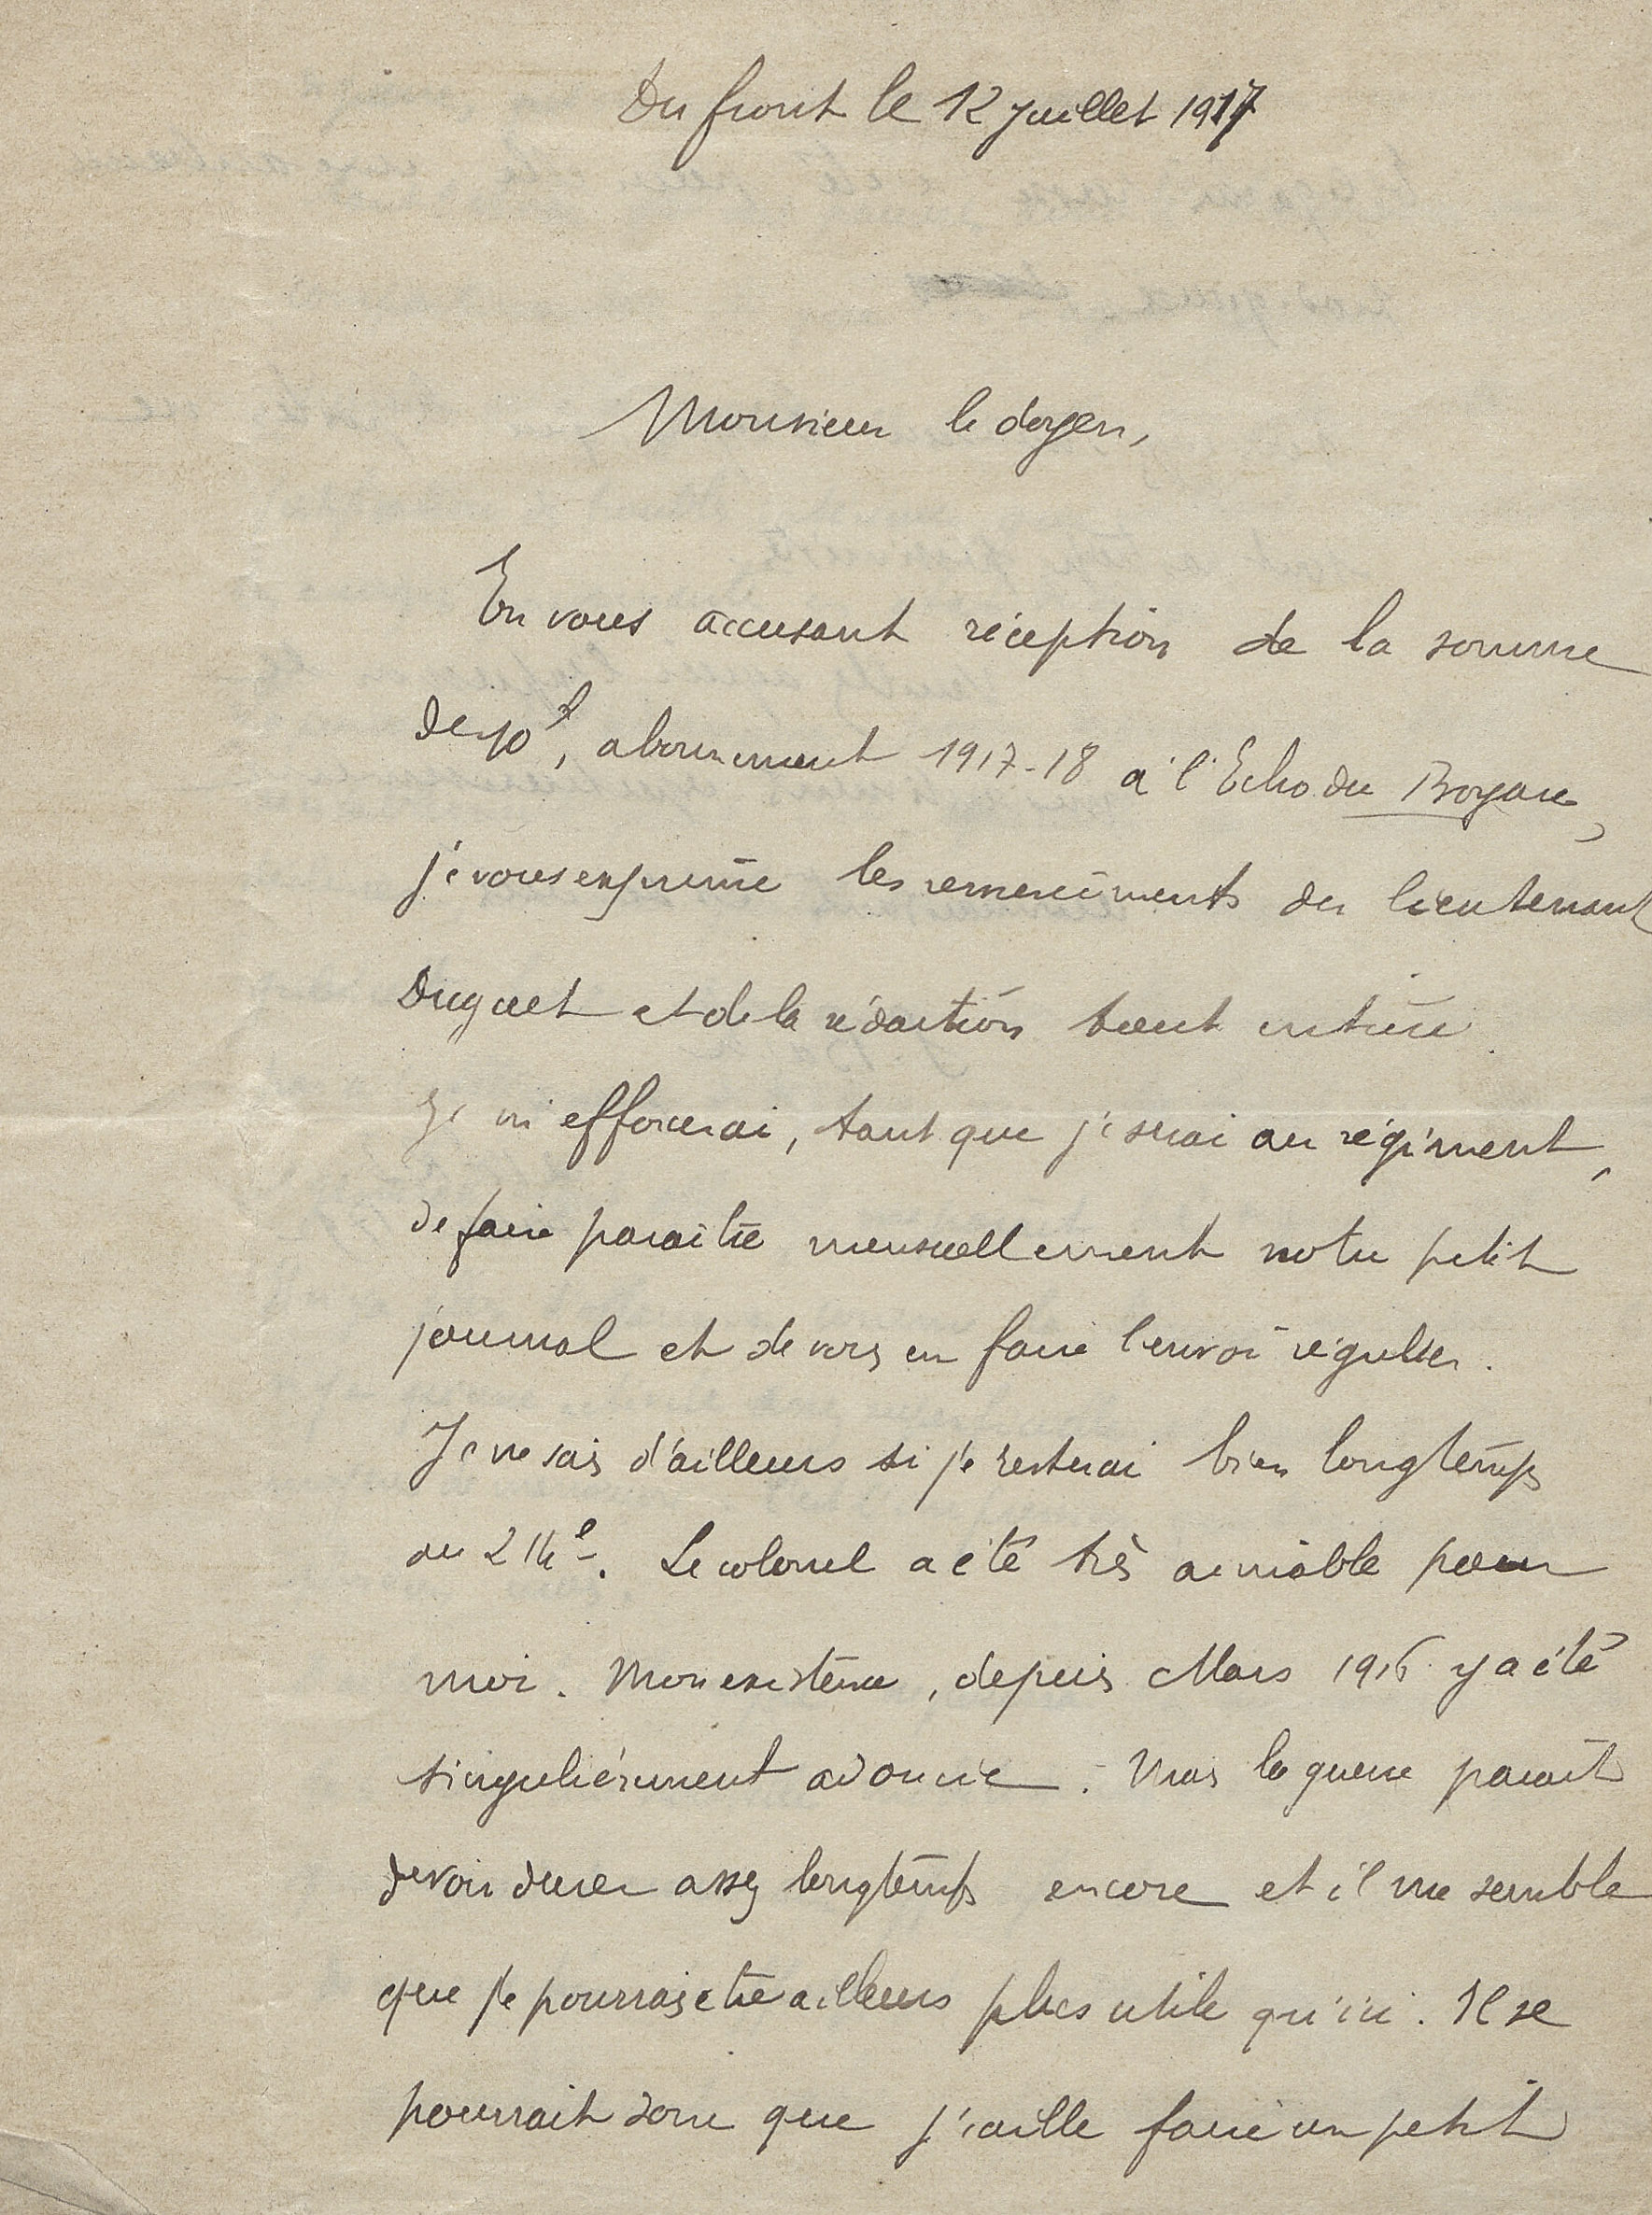 Du front le 12 Juillet 1917
Monsieur le doyen,
En vous accusant réception de la somme
de 10f, abonnement 1917-18 à l'Echo du Boyau,
je vous exprime les remerciments du lieutenant
Duguet et de la rédaction tout entière.
Je m'efforcerai, tant que je serai au régiment,
de faire paraître mensuellement notre petit
journal et de vous en faire l'envoi régulier.
Je ne sais d'ailleurs si je resterai bien longtemps
au 214e. Le colonel a été très aimable pour
moi. Mon existence, depuis Mars 1916 y a été
singulièrement adoucie. Mais la guerre paraît
devoir durer assez longtemps encore et il me semble
que je pourrais être ailleurs plus utile qu'ici. Il se
pourrait donc que j'aille faire un petit